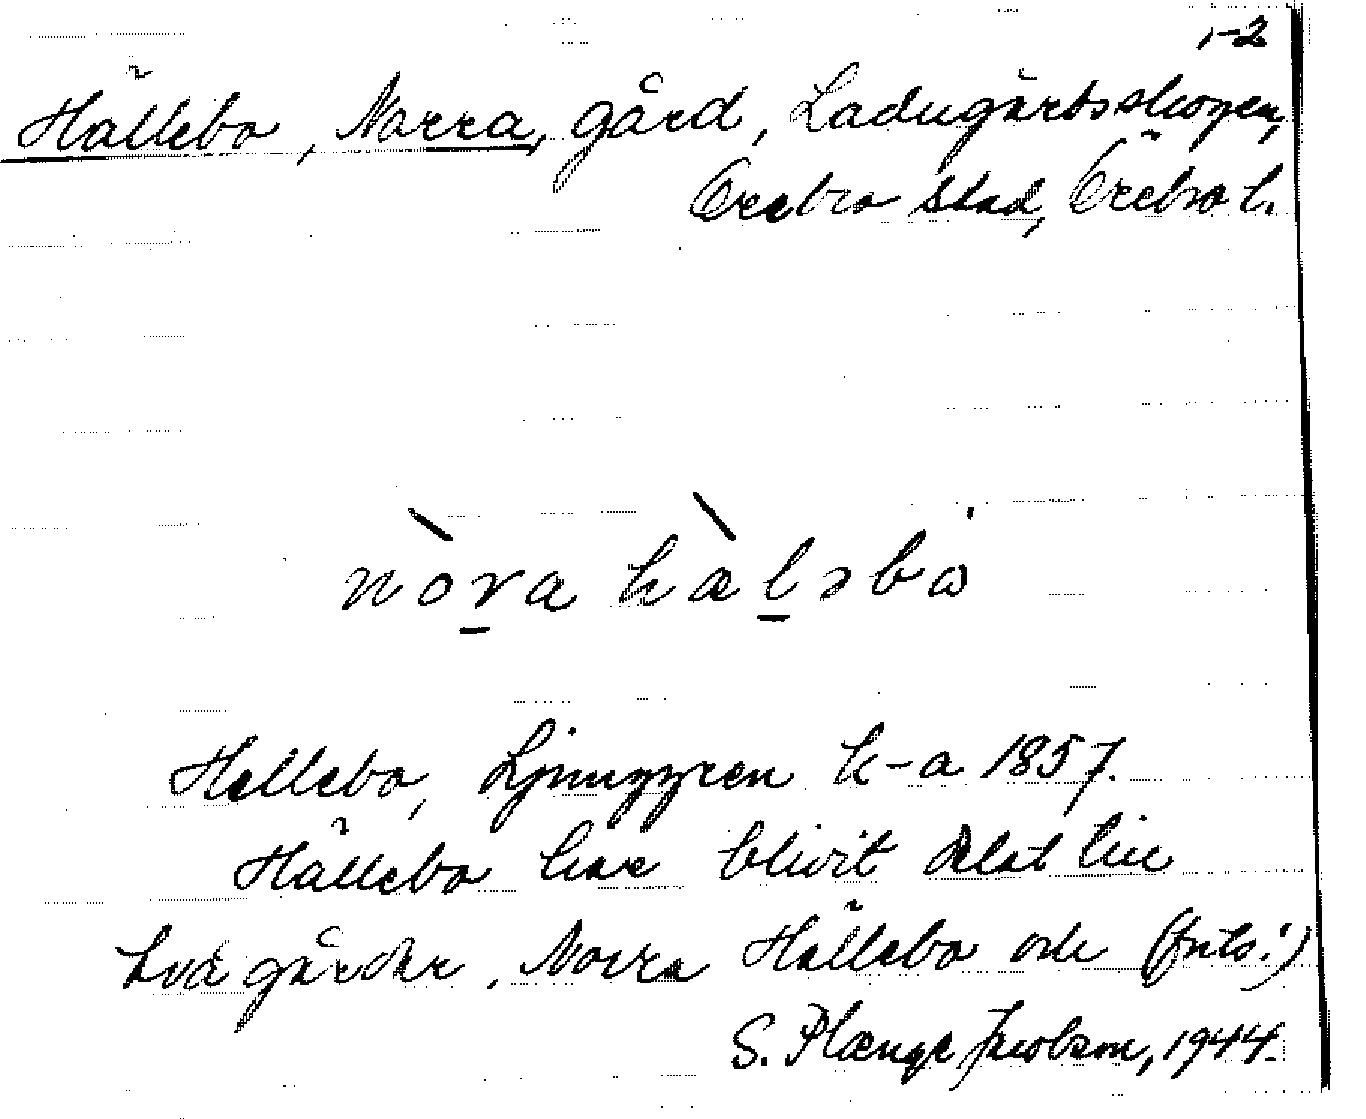 1-2
Hällebo, Norra, gård, Ladugårdsskogen,
Örebro stad, Örebro l.
nòra hæ̀ləbω
Hellebo, Ljunggren k-a 1857.
Hällebo har blivit delat till
två gårdar, Norra Hällebo och (forts.)
S. Plænge Jacobson, 1944.